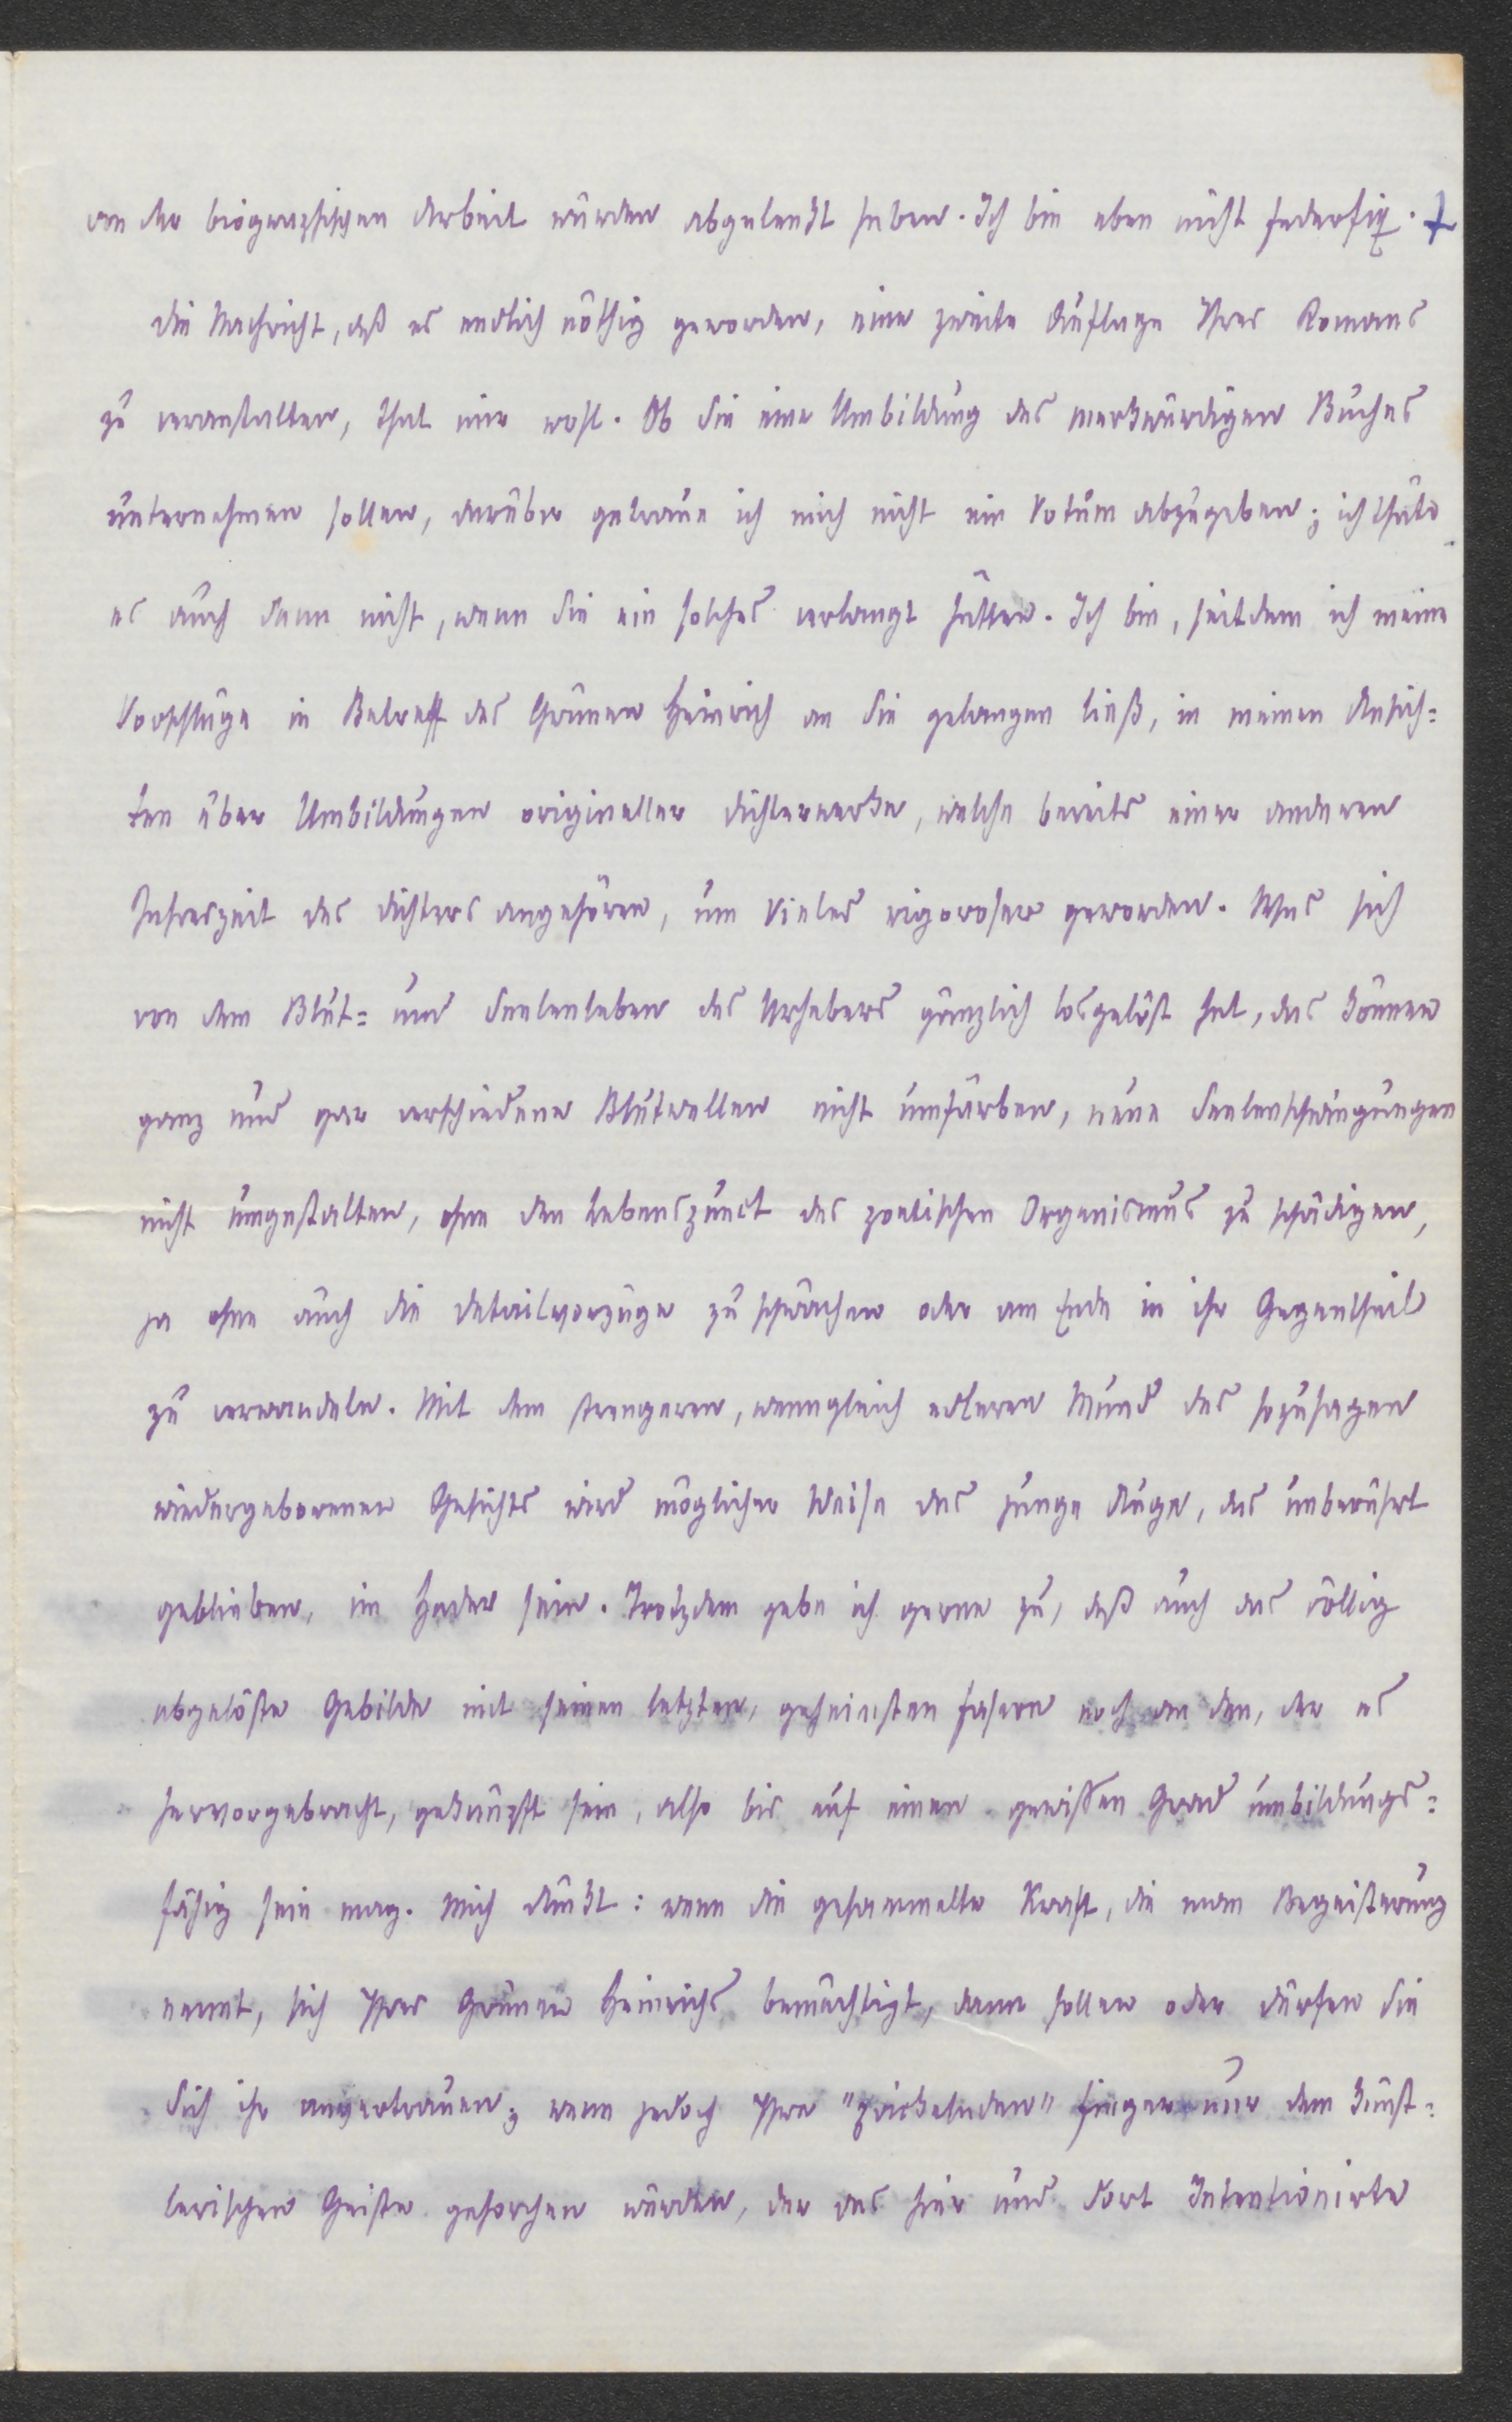 von der biographischen Arbeit würden abgelenkt haben. Ich bin eben nicht federfix. +
Die Nachricht, daß es endlich nöthig geworden, eine zweite Auflage Ihres Romans
zu veranstalten, that mir wohl. Ob Sie eine Umbildung des merkwürdigen Buches
unternehmen sollen, darüber getraue ich mich nicht ein Votum abzugeben; ich thäte
es auch dann nicht, wenn Sie ein solches verlangt hätten. Ich bin, seitdem ich meine
Vorschläge in Betreff des Grünen Heinrich an Sie gelangen ließ, in meinen Ansich=
ten über Umbildungen origineller Dichterwerke, welche bereits einer anderen
Jahreszeit des Dichters angehören, um Vieles rigoroser geworden. Was sich
von dem Blut= und Seelenleben des Urhebers gänzlich losgelöst hat, das können
ganz und gar verschiedene Blutwellen nicht umfärben, neue Seelenschwingungen
nicht umgestalten, ohne den Lebenspunct des poetischen Organismus zu schädigen,
ja ohne auch die Detailvorzüge zu schwächen oder am Ende in ihr Gegentheil
zu verwandeln. Mit dem strengeren, wenngleich edleren Mund des sozusagen
wiedergeborenen Gesichts wird möglicher Weise das junge Auge, das unberührt
geblieben, im Hader sein. Trotzdem gebe ich gerne zu, daß auch das völlig
abgelöste Gebilde mit seinen letzten, geheimsten Fasern noch an den, der es
hervorgebracht, geknüpft sein, also bis auf einen gewissen Grad umbildungs=
fähig sein mag. Mich dünkt: wenn die gesammelte Kraft, die man Begeisterung
nennt, sich Ihres Grünen Heinrichs bemächtigt, dann sollen oder dürfen Sie
Sich ihr anvertrauen; wenn jedoch Ihre "prickelnden" Finger nur dem künst=
lerischen Geiste gehorchen würden, der das hier und dort Intentionirte